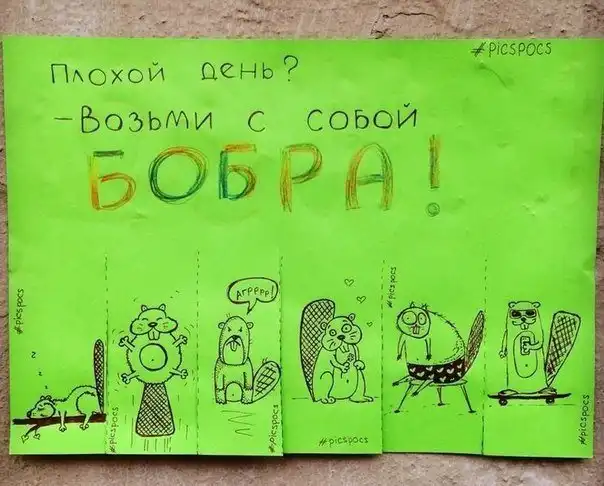 #picspocs
Плохой день?
-Возьми с собой
БОБРА!
#picspocs
z
z
#picspocs
Агрррр!
#picspocs
#picspocs
#picspocs